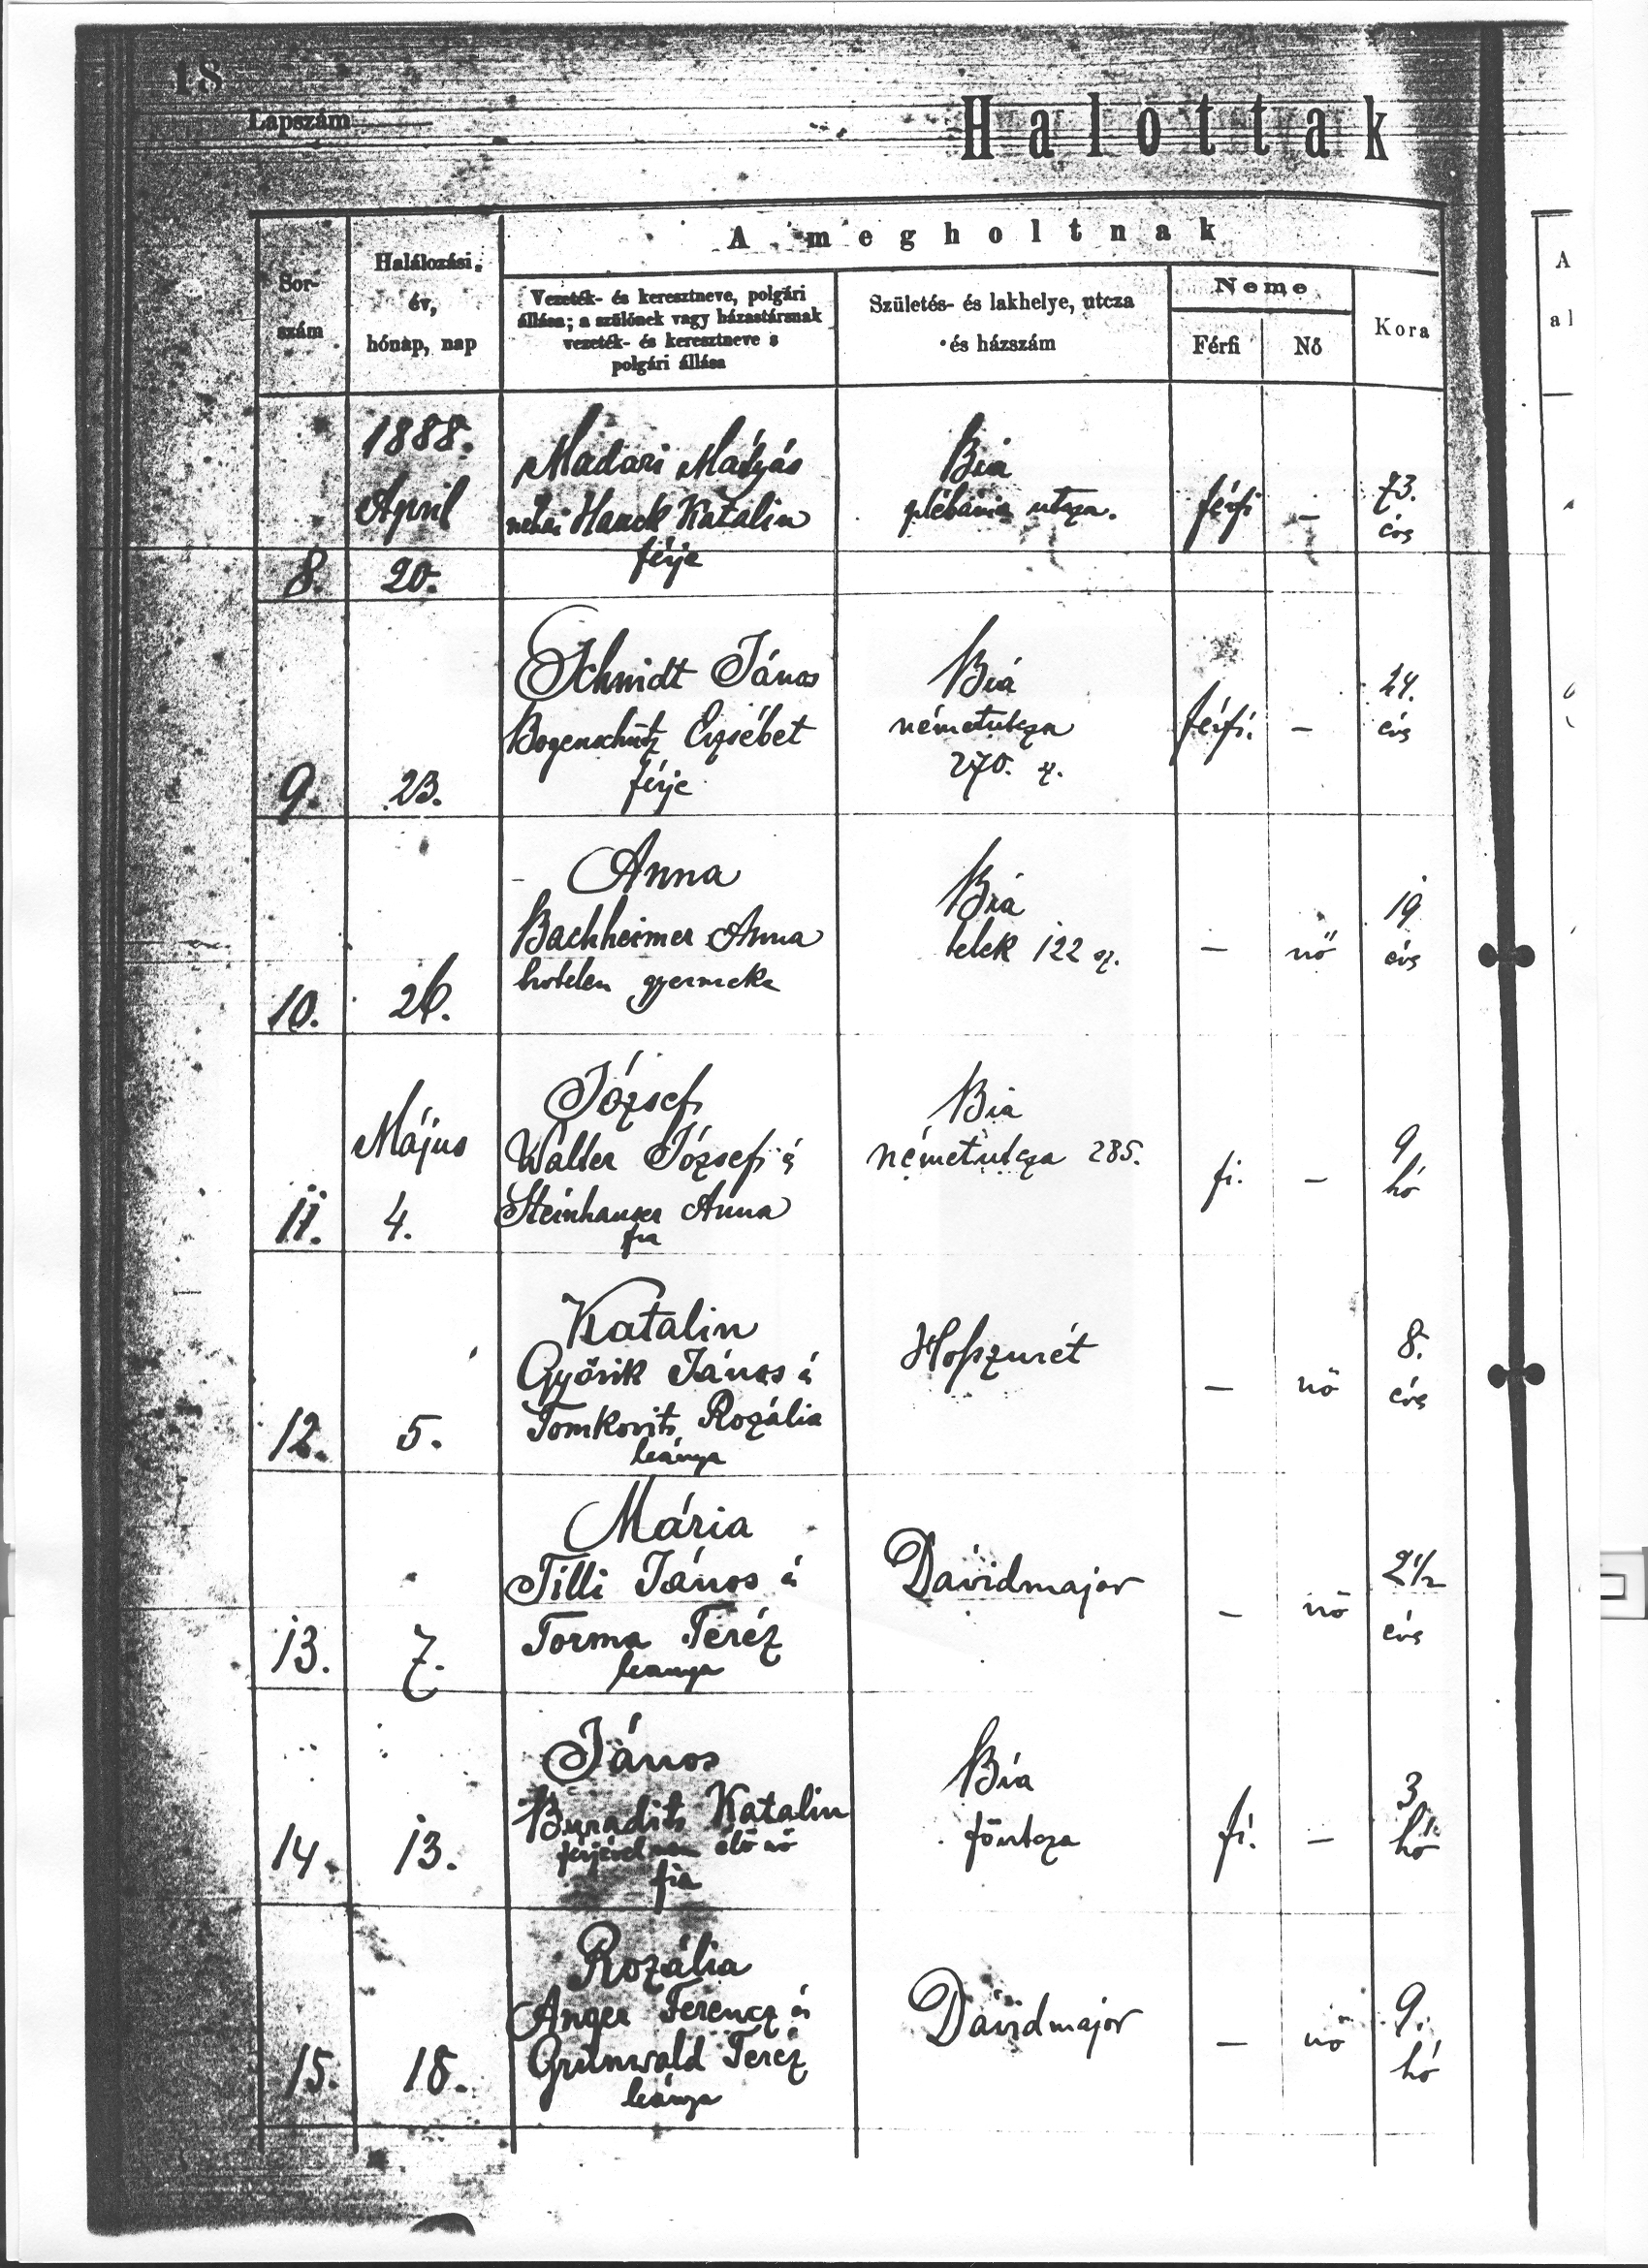 18
Lapszám
Halottak
Sor-
szám
Halálozási
év,
hónap, nap
A megholtnak
Vezeték- és keresztneve, polgári
állása; a szülőnek vagy házastársnak
vezeték- és keresztneve s
polgári állása
Születés- és lakhelye, utcza
és házszám
Neme
Férfi
Nő
Kora
A
al
1888.
April
8.
20.
Madari Mátyás
néhai Hauck Katalin
férje
Bia
plébánia utcza.
férfi
–
73.
éves
9.
23.
Schmidt János
Bogenschütz Erzsébet
férje
Bia
németutcza
270. sz.
férfi.
–
24.
éves
10.
26.
Anna
Bachheimer Anna
gyermeke
Bia
telek 122 sz.
–
nő
19
éves
11.
Május
4.
József
Walter József és
Steinhauser Anna
fia
Bia
németutcza 285.
fi.
–
9
hó
12.
5.
Katalin
Győrik János és
Tomkovits Rozália
leánya
Hoszurét
–
nő
8.
éves
13.
7.
Mária
Tilli János és
Torma Teréz
leanya
Dávidmajor
–
nő
2 1/2
éves
14.
13.
János
Buradits Katalin
férjével nem élő nő
fia
Bia
főutcza
fi.
–
3
hó
15.
18.
Rozália
Anger Ferencz és
Grünwald Teréz
leánya
Dávidmajor
–
nő
9.
hó